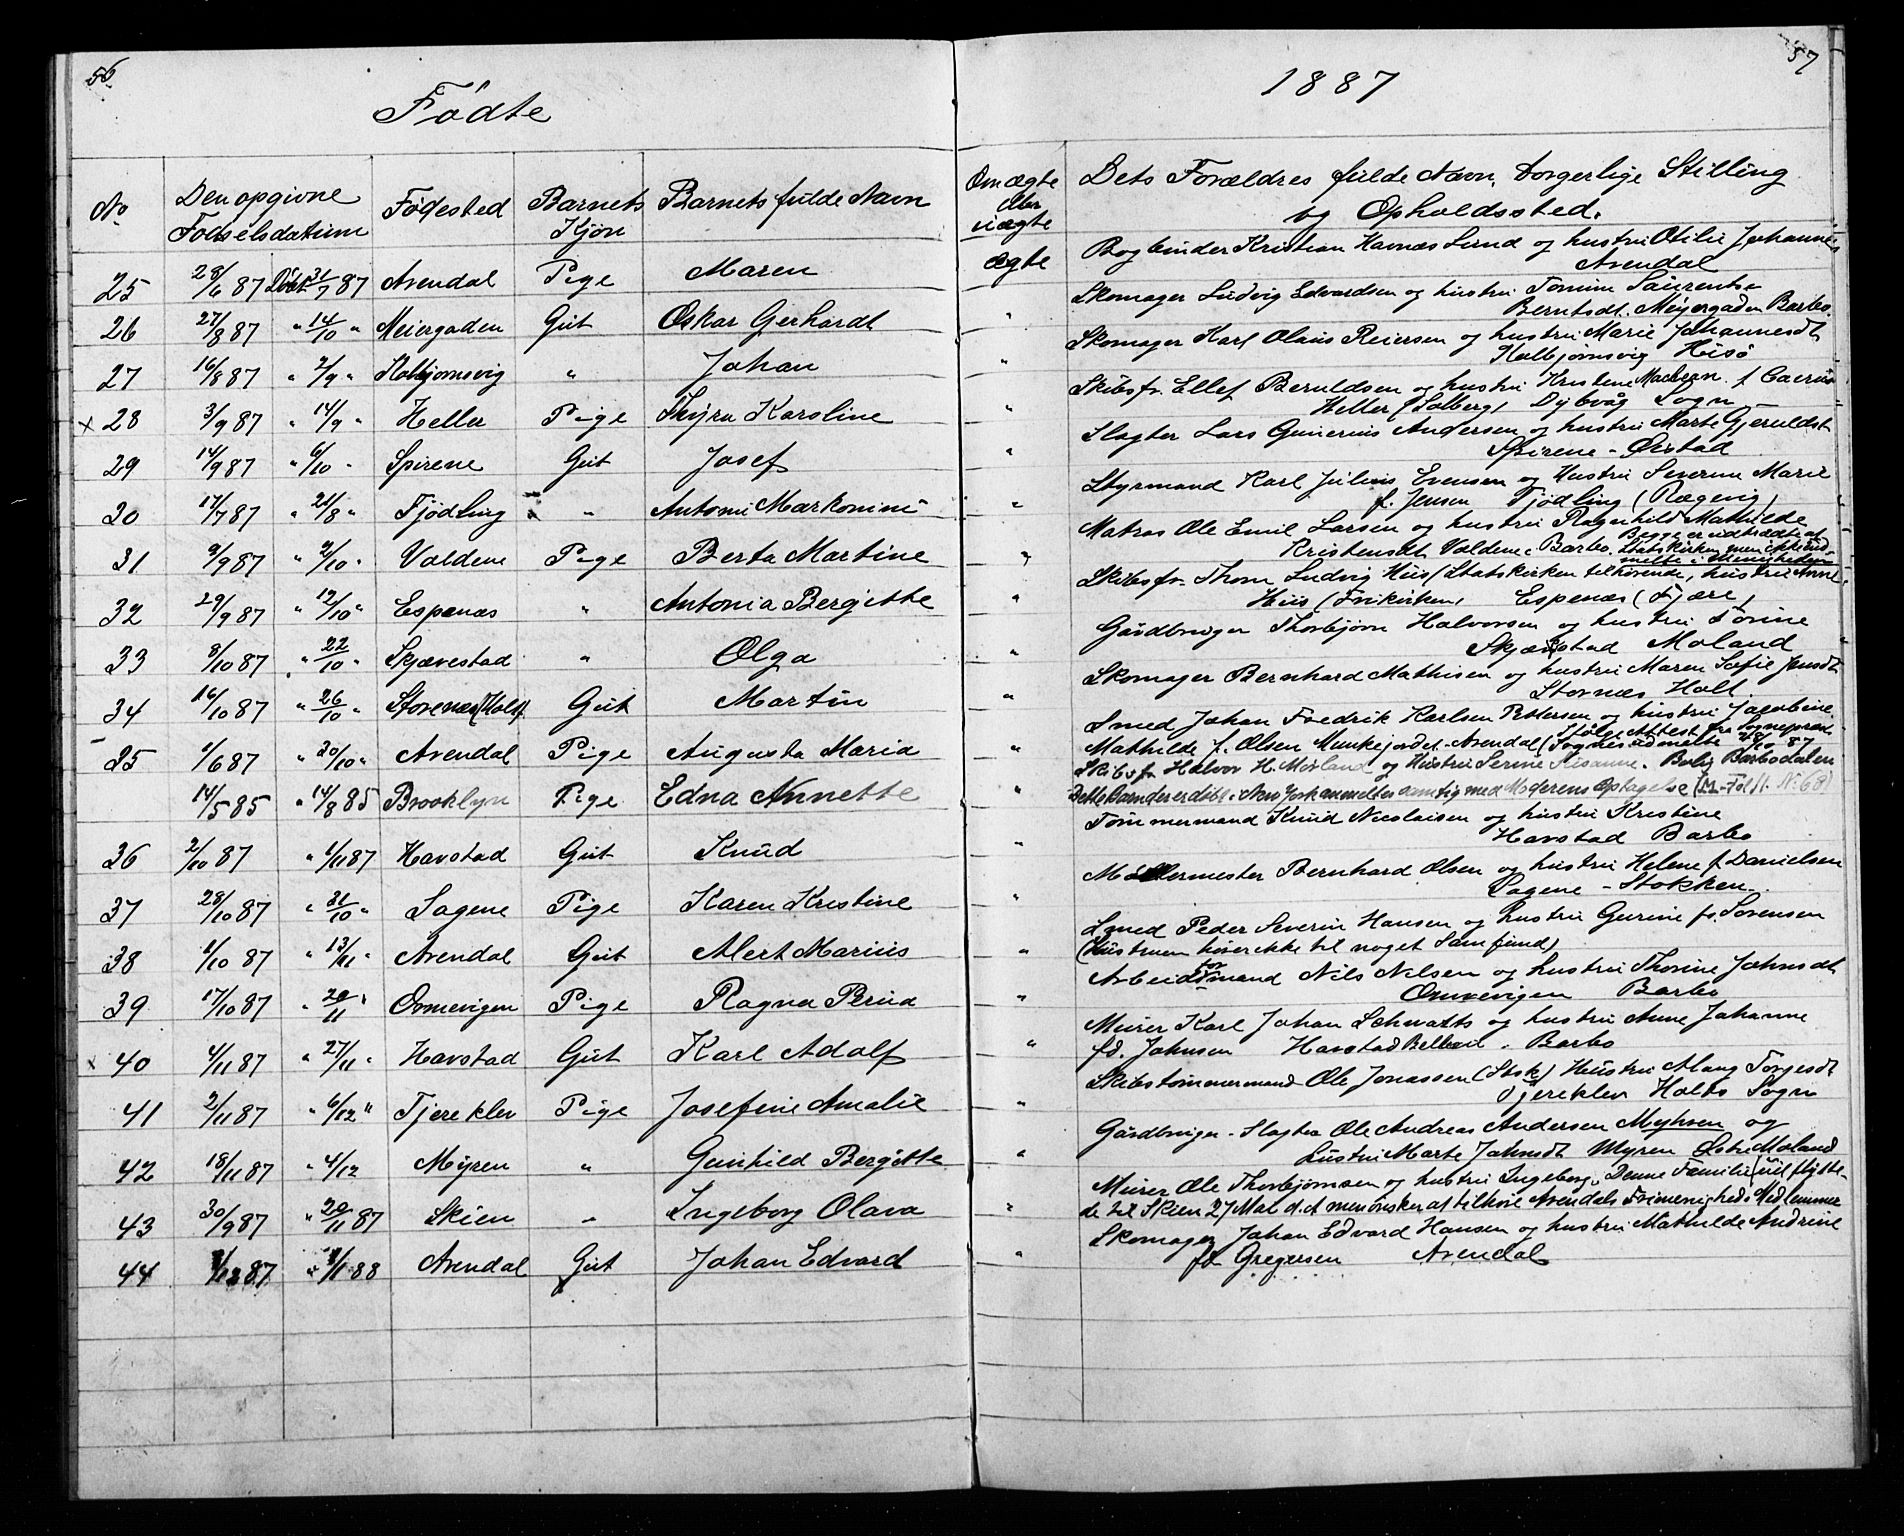 56
Fødte
No
Den opgivne
Fødselsdatum
Fødested
Barnets
Kjön
Barnets fulde Navn
25 28/6 87 Döbt 31/7 87 Arendal Pige Maren
26 27/8 87 " 14/10 " Meiergaden Gut Oskar Gerhardt
27 16/8 87 " 2/9 " Kolbjørnsvig " Johan
x 28 3/9 87 " 14/9 " Heller Pige Thyra Karoline
29 14/9 87 " 6/10 " Spirene Gut Josef
30 17/7 87 " 21/8 " Fjödling " Antoni
31 9/9 87 " 2/10 " Voldene Pige Berta Martine
32 29/9 87 " 12/10 " Espenæs " Antonia Bergitte
33 8/10 87 " 22/10 " Skjævestad " Olga
34 16/10 87 " 26/10 " Storenæs (Holt) Gut Martin
35 1/6 87 " 30/10 " Arendal Pige Augusta Maria
14/5 85 " 14/8 85 Brooklyn Pige Edna Annette
36 2/10 87 " 1/11 87 Havstad Gut Knud
37 28/10 87 " 31/10 " Sagene Pige Karen Kristine
38 1/10 87 " 13/11 " Arendal Gut Alert Marius
39 17/10 87 " 20/11 " Ormevigen Pige Ragna
x 40 4/11 87 " 27/11 " Havstad Gut Karl Adolf
41 2/11 87 " 6/12 " Tjereklev Pige Josefine Amalie
42 18/11 87 " 4/12 Myren " Gunhild Bergitte
43 30/9 87 " 20/11 87 Skien " Ingeborg Olava
44 /12 87 " 1/1 88 Arendal Gut Johan Edvard
57
1887
Om ægte
eller
uægte
ægte
Dets Forældres fulde Navn, borgerlige Stilling
og Opholdssted.
Bogbinder Kristian Havnæs Lund og hustru Otilie Johannes
Arendal
Skomager Ludvig Edvardsen og hustru Tomine Laurentse
Berntsdt. Meyergaden Barbo.
Skomager Karl Olaus Reiersen og hustru Marie Johannesdt
Kolbjørnsvig Hisö
Skibsfr. Ellef Beruldsen og hustru Kristene f.
Heller (Solberg) Dybvåg Sogn
Slagter Lars Gunerius Andersen og hustru Marte Gjeruldst
Spirene - Öiestad
Styrmand Karl Julius Evensen og Hustru Severine Marie
f. Jensen Fjödling (Rægevig)
Matros Ole Emil Larsen og hustru Ragnhild Mathilde
Kristensdt. Voldene. Barbo. Begge er udtraadte af
Statskirken men ikke ind-
meldt i Menigheden
Skibsfr. Thom Ludvig Hiis (Statskirken tilhörende, hustru Anne
Hiis (Frikirken) Espenæs (Fjære)
Gårdbruger Thorbjörn Halvorsen og hustru Torine
Skjævestad Moland
Skomager Bernhard Mathisen og hustru Maren Sofie Jensdt
Stornæs Holt
Smed Johan Fredrik Karlsen Pettersen og hustru Jacobine
Mathilde f. Olsen Munkejordet - Arendal (Ifölge Attest fra Sognepræst
Skibsfr Halvor H. Morland og Hustru Serine Susanne. Bolig Barbodalen
Dette Barn der er döbt i New York anmeldtes samtig med Moderens Optagelse (M. Fol 11. No 68)
Tömmermand Knud Nicolaisen og hustru Kristine
Havstad Barbo
Möllermester Bernhard Olsen og hustru Helene f. Danielsen
Sagene - Stokken
Smed Peder Severin Hansen og hustru Gurine fs. Sorensen
(Hustruen hörer ikke til noget Samfund)
Arbeidsmand Nils Nilsen og hustru Thorine Johnsdt
Ormevigen Barbo
Murer Karl Johan Schwatts og hustru Anne Johanne
fd. Johnsen Havstad - Barbo
Skibstömmermand Ole Jonassen (Stsk) Hustru Alang Torjesdt
Tjereklev Holts Sogn
Gårdbruger - Slagter Ole Andreas Andersen Myhren og
hustru Marte Johnsdt Myren Östre Moland
Murer Ole Thorbjörnsen og hustru Ingeborg. Denne Familie udflytte-
de til Skien 27 Mai d. A men önsker at tilhöre Arendals Frimenigheds Medlemmer
Skomager Johan Edvard Hansen og hustru Mathilde Andrine
fd. Gregersen Arendal